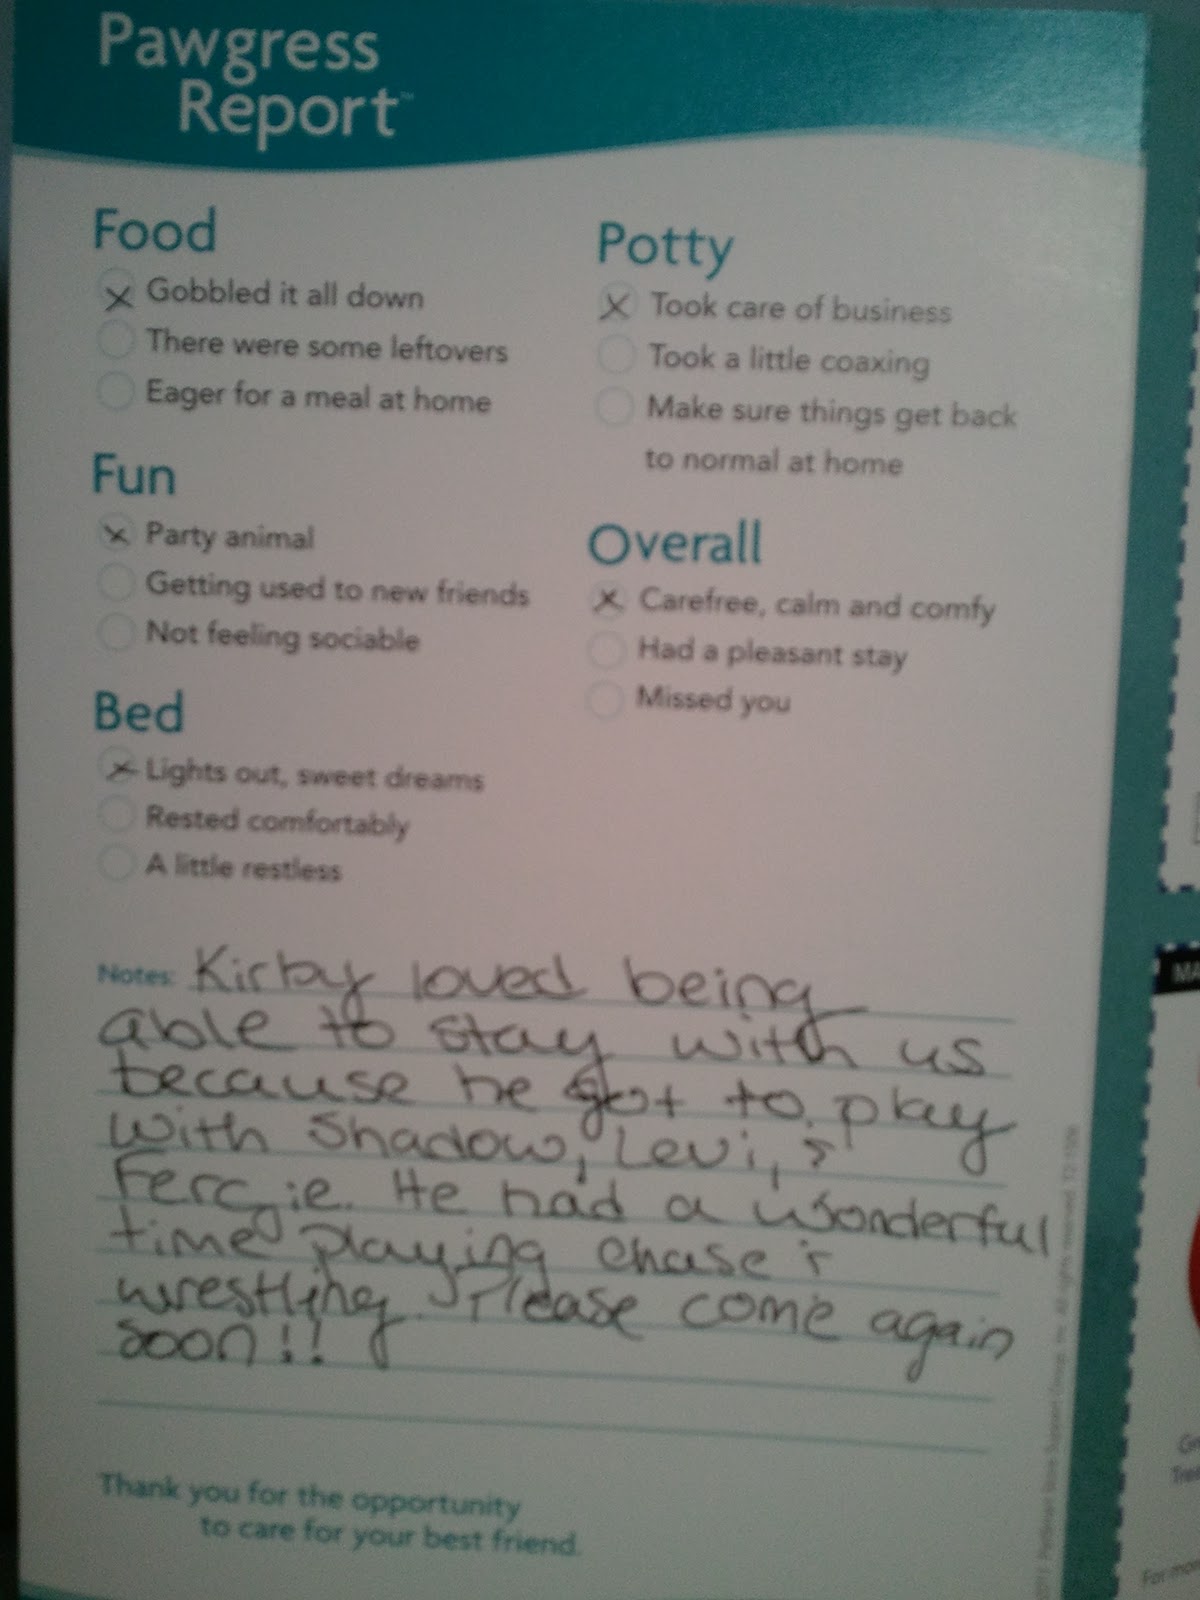 Pawgress
Report™
Food
Gobbled it all down
There were some leftovers
Eager for a meal at home
Fun
Party animal
Getting used to new friends
Not feeling sociable
Bed
Lights out, sweet dreams
Rested comfortably
A little restless
Potty
Took care of business
Took a little coaxing
Make sure things get back
to normal at home
Overall
Carefree, calm and comfy
Had a pleasant stay
Missed you
Notes: Kirby loved being
able to stay with us
because he got to play
with Shadow, Levi, &
Fergie. He had a wonderful
time playing chase &
wrestling. Please come again
soon!!
Thank you for the opportunity
to care for your best friend.
All rights reserved.
MA
For more